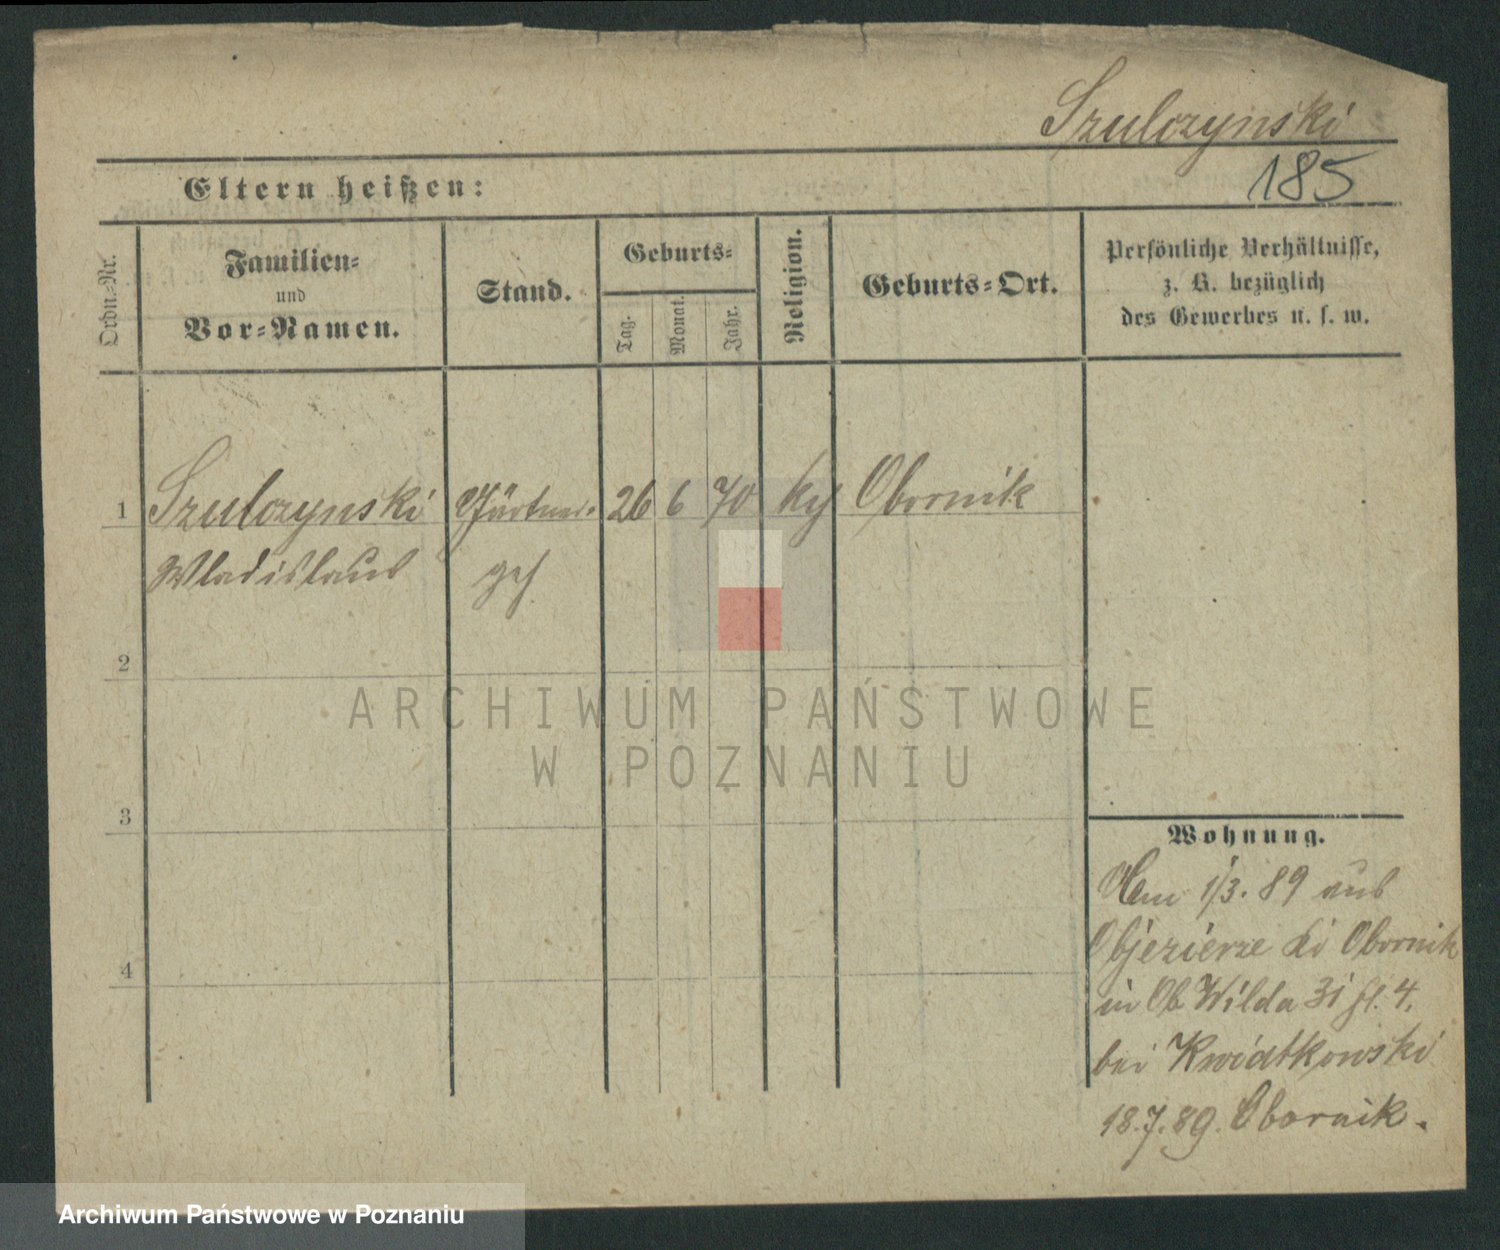 Szulczynski
185
Eltern heißen:
Ordn.-Nr.
Familien-
und
Vor-Namen.
Stand.
Geburts-
Tag.
Monat.
Jahr.
Religion.
Geburts-Ort.
Persönliche Verhältnisse,
z. B. bezüglich
des Gewerbes u. s. w.
1 Szulczynski Gärtner- 26 6 70 Obornik
Wladislaus geh
2
3
4
Wohnung.
1/3. 89 aus
Objezierze Obornik
in Ob Wilda 31 4.
bei Kwiatkowski
18.7.89. Obornik.
ARCHIWUM PAŃSTWOWE
W POZNANIU
Archiwum Państwowe w Poznaniu